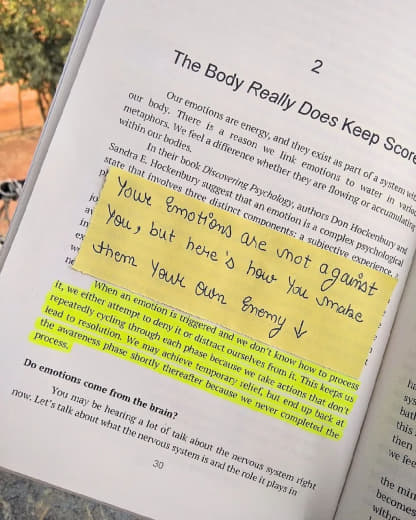 2
The Body Really Does Keep Score
Our emotions are energy, and they exist as part of a system
our body. There is a reason we link emotions to water in
metaphors. We feel a difference whether they are flowing or accumulating
within our bodies.
In their book Discovering Psychology, authors Don Hockenbury and
Sandra E. Hockenbury suggest that an emotion is a complex psychological
state that involves three distinct components: a subjective experience, a
Your Emotions are not against
You, but here's how You make
them Your own Enemy ↓
When an emotion is triggered and we don't know how to process
it, we either attempt to deny it or distract ourselves from it. This keeps us
repeatedly cycling through each phase because we take actions that don't
lead to resolution. We may achieve temporary relief, but end up back at
the awareness phase shortly thereafter because we never completed the
process.
Do emotions come from the brain?
You may be hearing a lot of talk about the nervous system right
now. Let's talk about what the nervous system is and the role it plays in
30
sys
this
then
we fee
the min
becomes